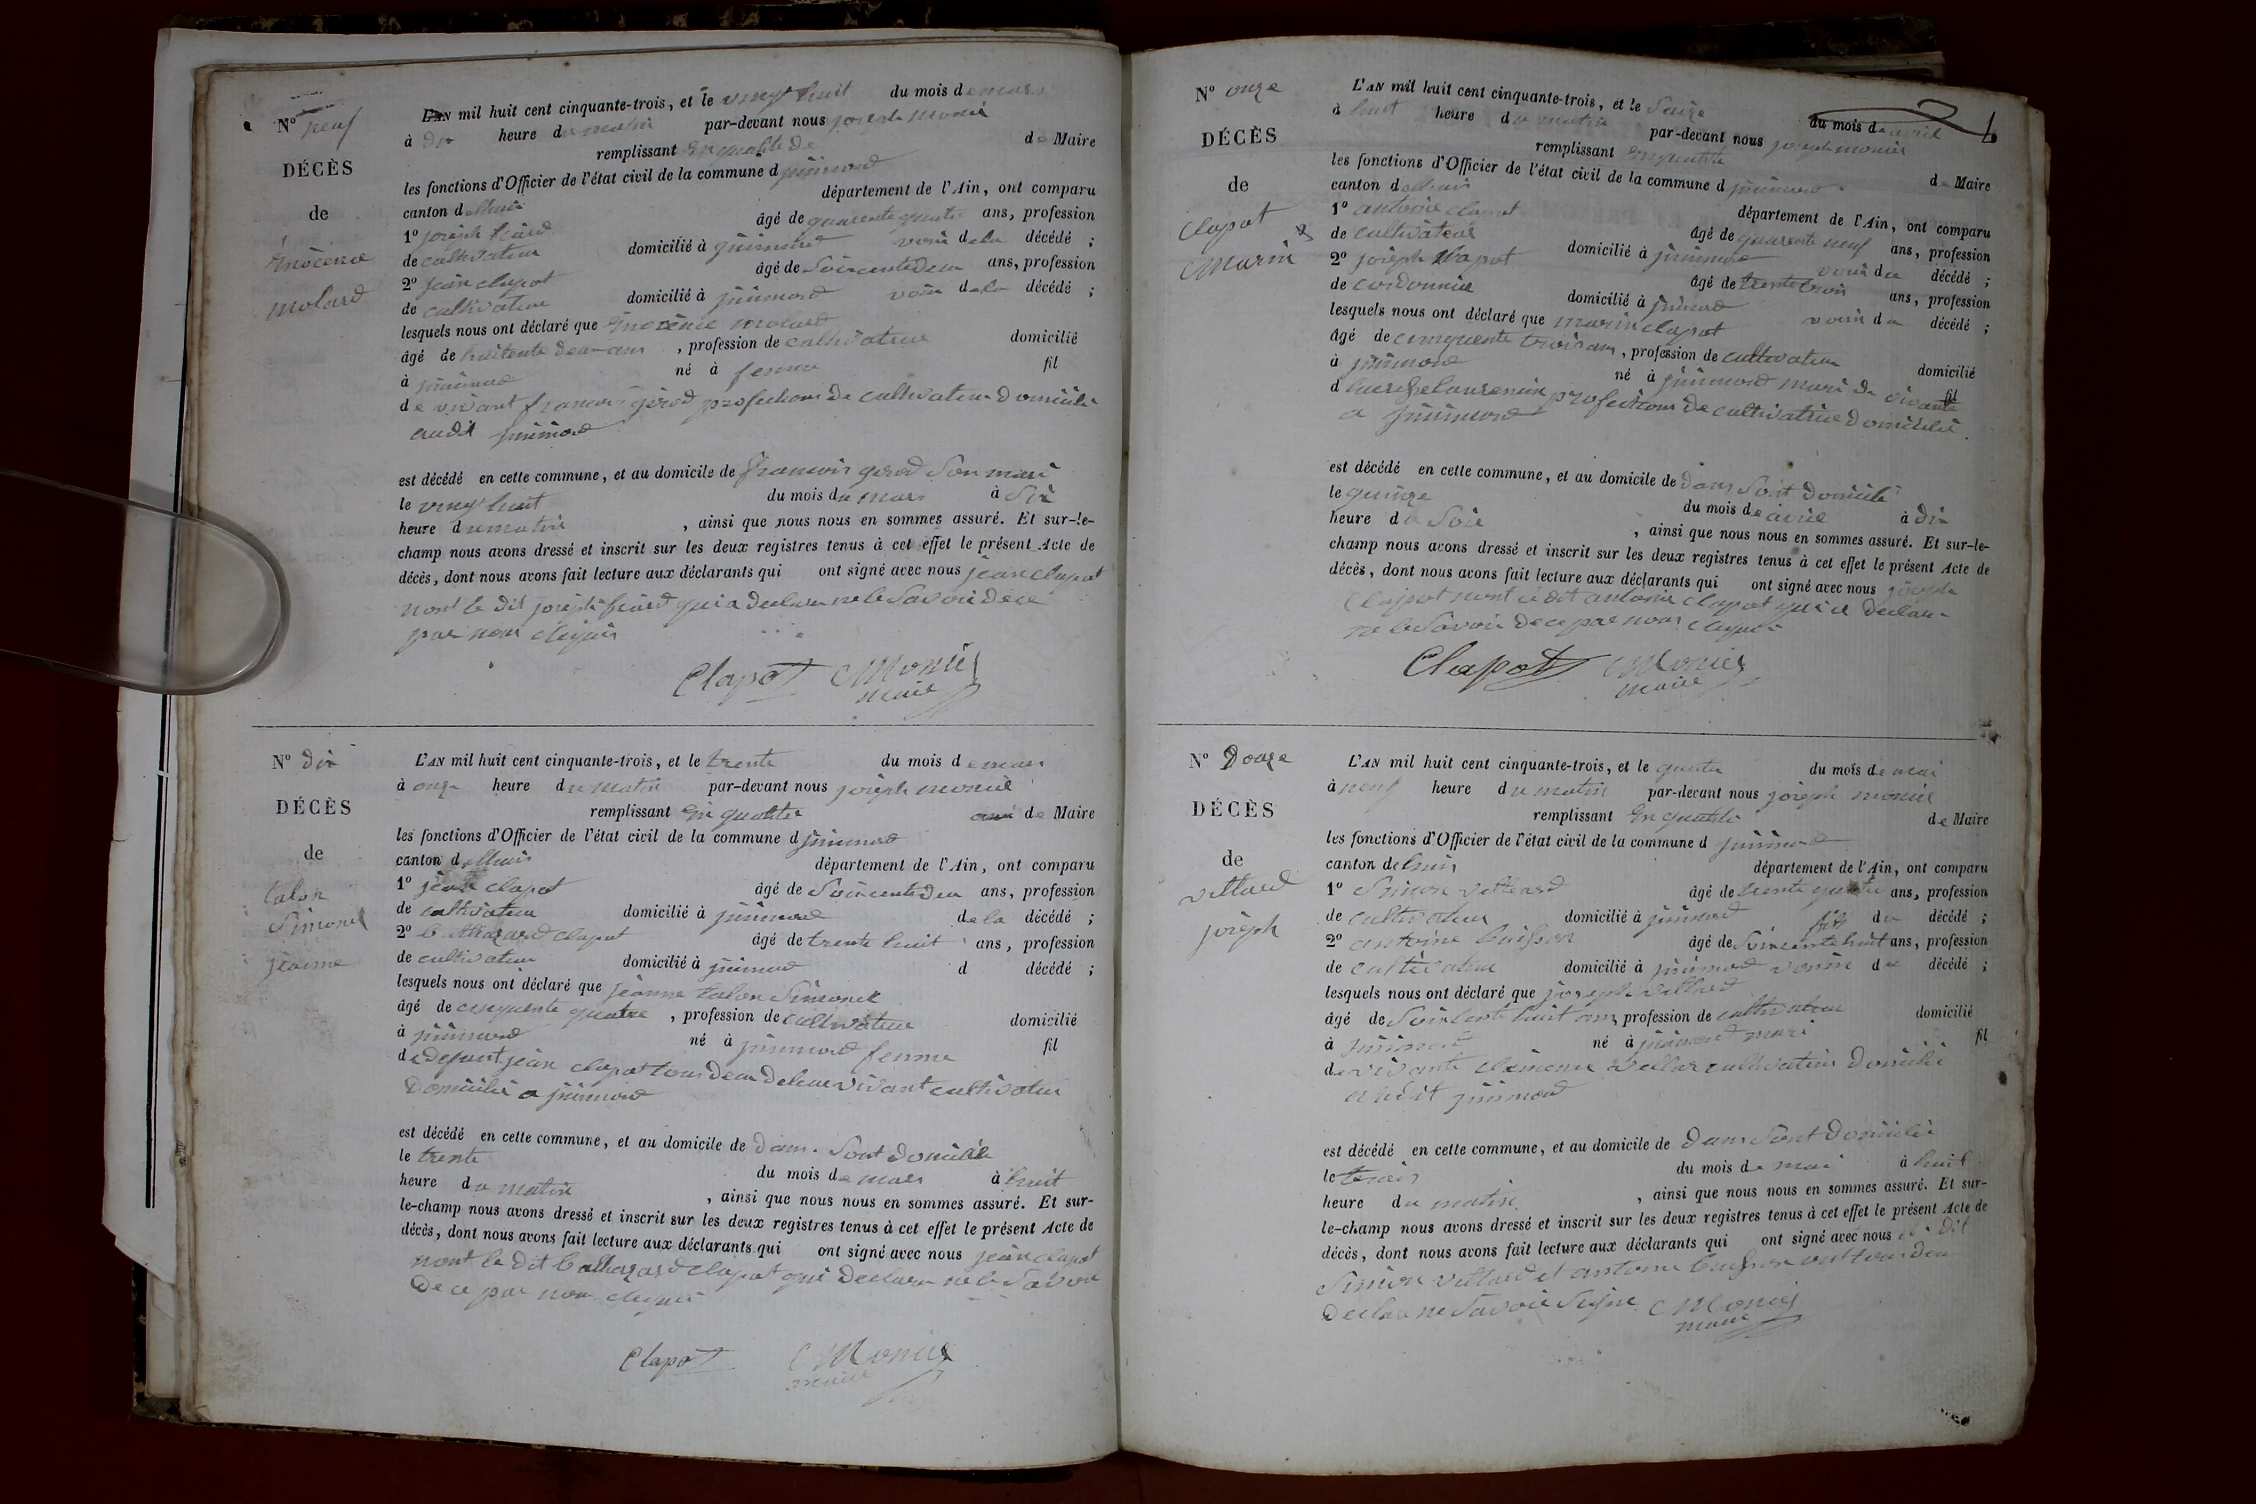 Nº neuf
DÉCÈS
de
inocence
molard
L'AN mil huit cent cinquante-trois, et le vingt huit du mois de mars
à dix heure du matin par-devant nous joseph monier
remplissant en qualité de de Maire
les fonctions d'Officier de l'état civil de la commune d
canton de lhuis département de l'Ain, ont comparu
1º joseph âgé de quarente quatre ans, profession
de cultivateur domicilié à voisin de la décédé ;
2º jean clapot âgé de Soixente deux ans, profession
de cultivateur domicilié à voisin de la décédé ;
lesquels nous ont déclaré que inocence molard
âgé de huitente deux ans , profession de cultivateur domicilié
à né à femme fil
de vivant francois gerod profechons de cultivateur domicilié
audit
est décédé en cette commune, et au domicile de francois gerod Son mari
le vingt huit du mois de mars à Six
heure du matin , ainsi que nous nous en sommes assuré. Et sur-le-
champ nous avons dressé et inscrit sur les deux registres tenus à cet effet le présent Acte de
décès, dont nous avons fait lecture aux déclarants qui ont signé avec nous jean clapot
nont le dit joseph qui a declare ne le Savoir de ce
par nous
Clapot Monier
maire
Nº dix
DÉCÈS
de
talon
Simonet
jeanne
L'AN mil huit cent cinquante-trois, et le trente du mois de mars
à onze heure du matin par-devant nous joseph monier
remplissant en qualiter de Maire
les fonctions d'Officier de l'état civil de la commune d
canton de lhuis département de l'Ain, ont comparu
1º jean clapot âgé de Soixente deux ans, profession
de cultivateur domicilié à de la décédé ;
2º balthazard clapot âgé de trente huit ans, profession
de cultivateur domicilié à d décédé ;
lesquels nous ont déclaré que jeanne talon Simonet
âgé de cinquente quatre , profession de cultivateur domicilié
à né à femme fil
de defunt jean clapot tous deux de leur vivant cultivateur
domicilié a
est décédé en cette commune, et au domicile de dans Sont domicile
le trente du mois de mars à huit
heure du matin , ainsi que nous nous en sommes assuré. Et sur-
le-champ nous avons dressé et inscrit sur les deux registres tenus à cet effet le présent Acte de
décès, dont nous avons fait lecture aux déclarants qui ont signé avec nous jean clapot
nont le dit balthazard clapot qui declare ne le Savoir
de ce par nous
Clapot Monier
maire
Nº onze
DÉCÈS
de
Clapot
Marin
L'AN mil huit cent cinquante-trois, et le Seize du mois de avril
à huit heure du matin par-devant nous joseph monier
remplissant en qualité de Maire
les fonctions d'Officier de l'état civil de la commune d
canton de lhuis département de l'Ain, ont comparu
1º antoine clapot âgé de quarente neuf ans, profession
de cultivateur domicilié à voisin du décédé ;
2º joseph clapot âgé de trente trois ans, profession
de cordonnier domicilié à voisin du décédé ;
lesquels nous ont déclaré que marin clapot
âgé de cinquente trois ans , profession de cultivateur domicilié
à né à mari de vivante fil
d profechons de cultivatrice domicilié
a
est décédé en cette commune, et au domicile de dans Sont domicile
le quinze du mois de avril à dix
heure du Soir , ainsi que nous nous en sommes assuré. Et sur-le-
champ nous avons dressé et inscrit sur les deux registres tenus à cet effet le présent Acte de
décès, dont nous avons fait lecture aux déclarants qui ont signé avec nous joseph
Clapot nont le dit antoine clapot qui a declare
ne le Savoir de ce par nous
Clapot Monier
maire
Nº Douze
DÉCÈS
de
vettard
joseph
L'AN mil huit cent cinquante-trois, et le quatre du mois de mai
à neuf heure du matin par-devant nous joseph monier
remplissant en qualité de Maire
les fonctions d'Officier de l'état civil de la commune d
canton de lhuis département de l'Ain, ont comparu
1º Simon vettard âgé de trente quatre ans, profession
de cultivateur domicilié à fils du décédé ;
2º antoine buisson âgé de Soixente huit ans, profession
de cultivateur domicilié à voisin du décédé ;
lesquels nous ont déclaré que joseph vettard
âgé de Soixente huit ans, profession de cultivateur domicilié
à né à mari fil
de vivante cultivateur domicilié
audit
est décédé en cette commune, et au domicile de dans Sont domicile
le trois du mois de mai à huit
heure du matin , ainsi que nous nous en sommes assuré. Et sur-
le-champ nous avons dressé et inscrit sur les deux registres tenus à cet effet le présent Acte de
décès, dont nous avons fait lecture aux déclarants qui ont signé avec nous le dit
Simon vettard et antoine buisson ont tous deux
declare ne Savoir Signe Monier
maire